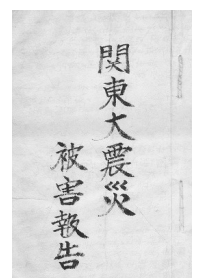 関東大震災
被害報告